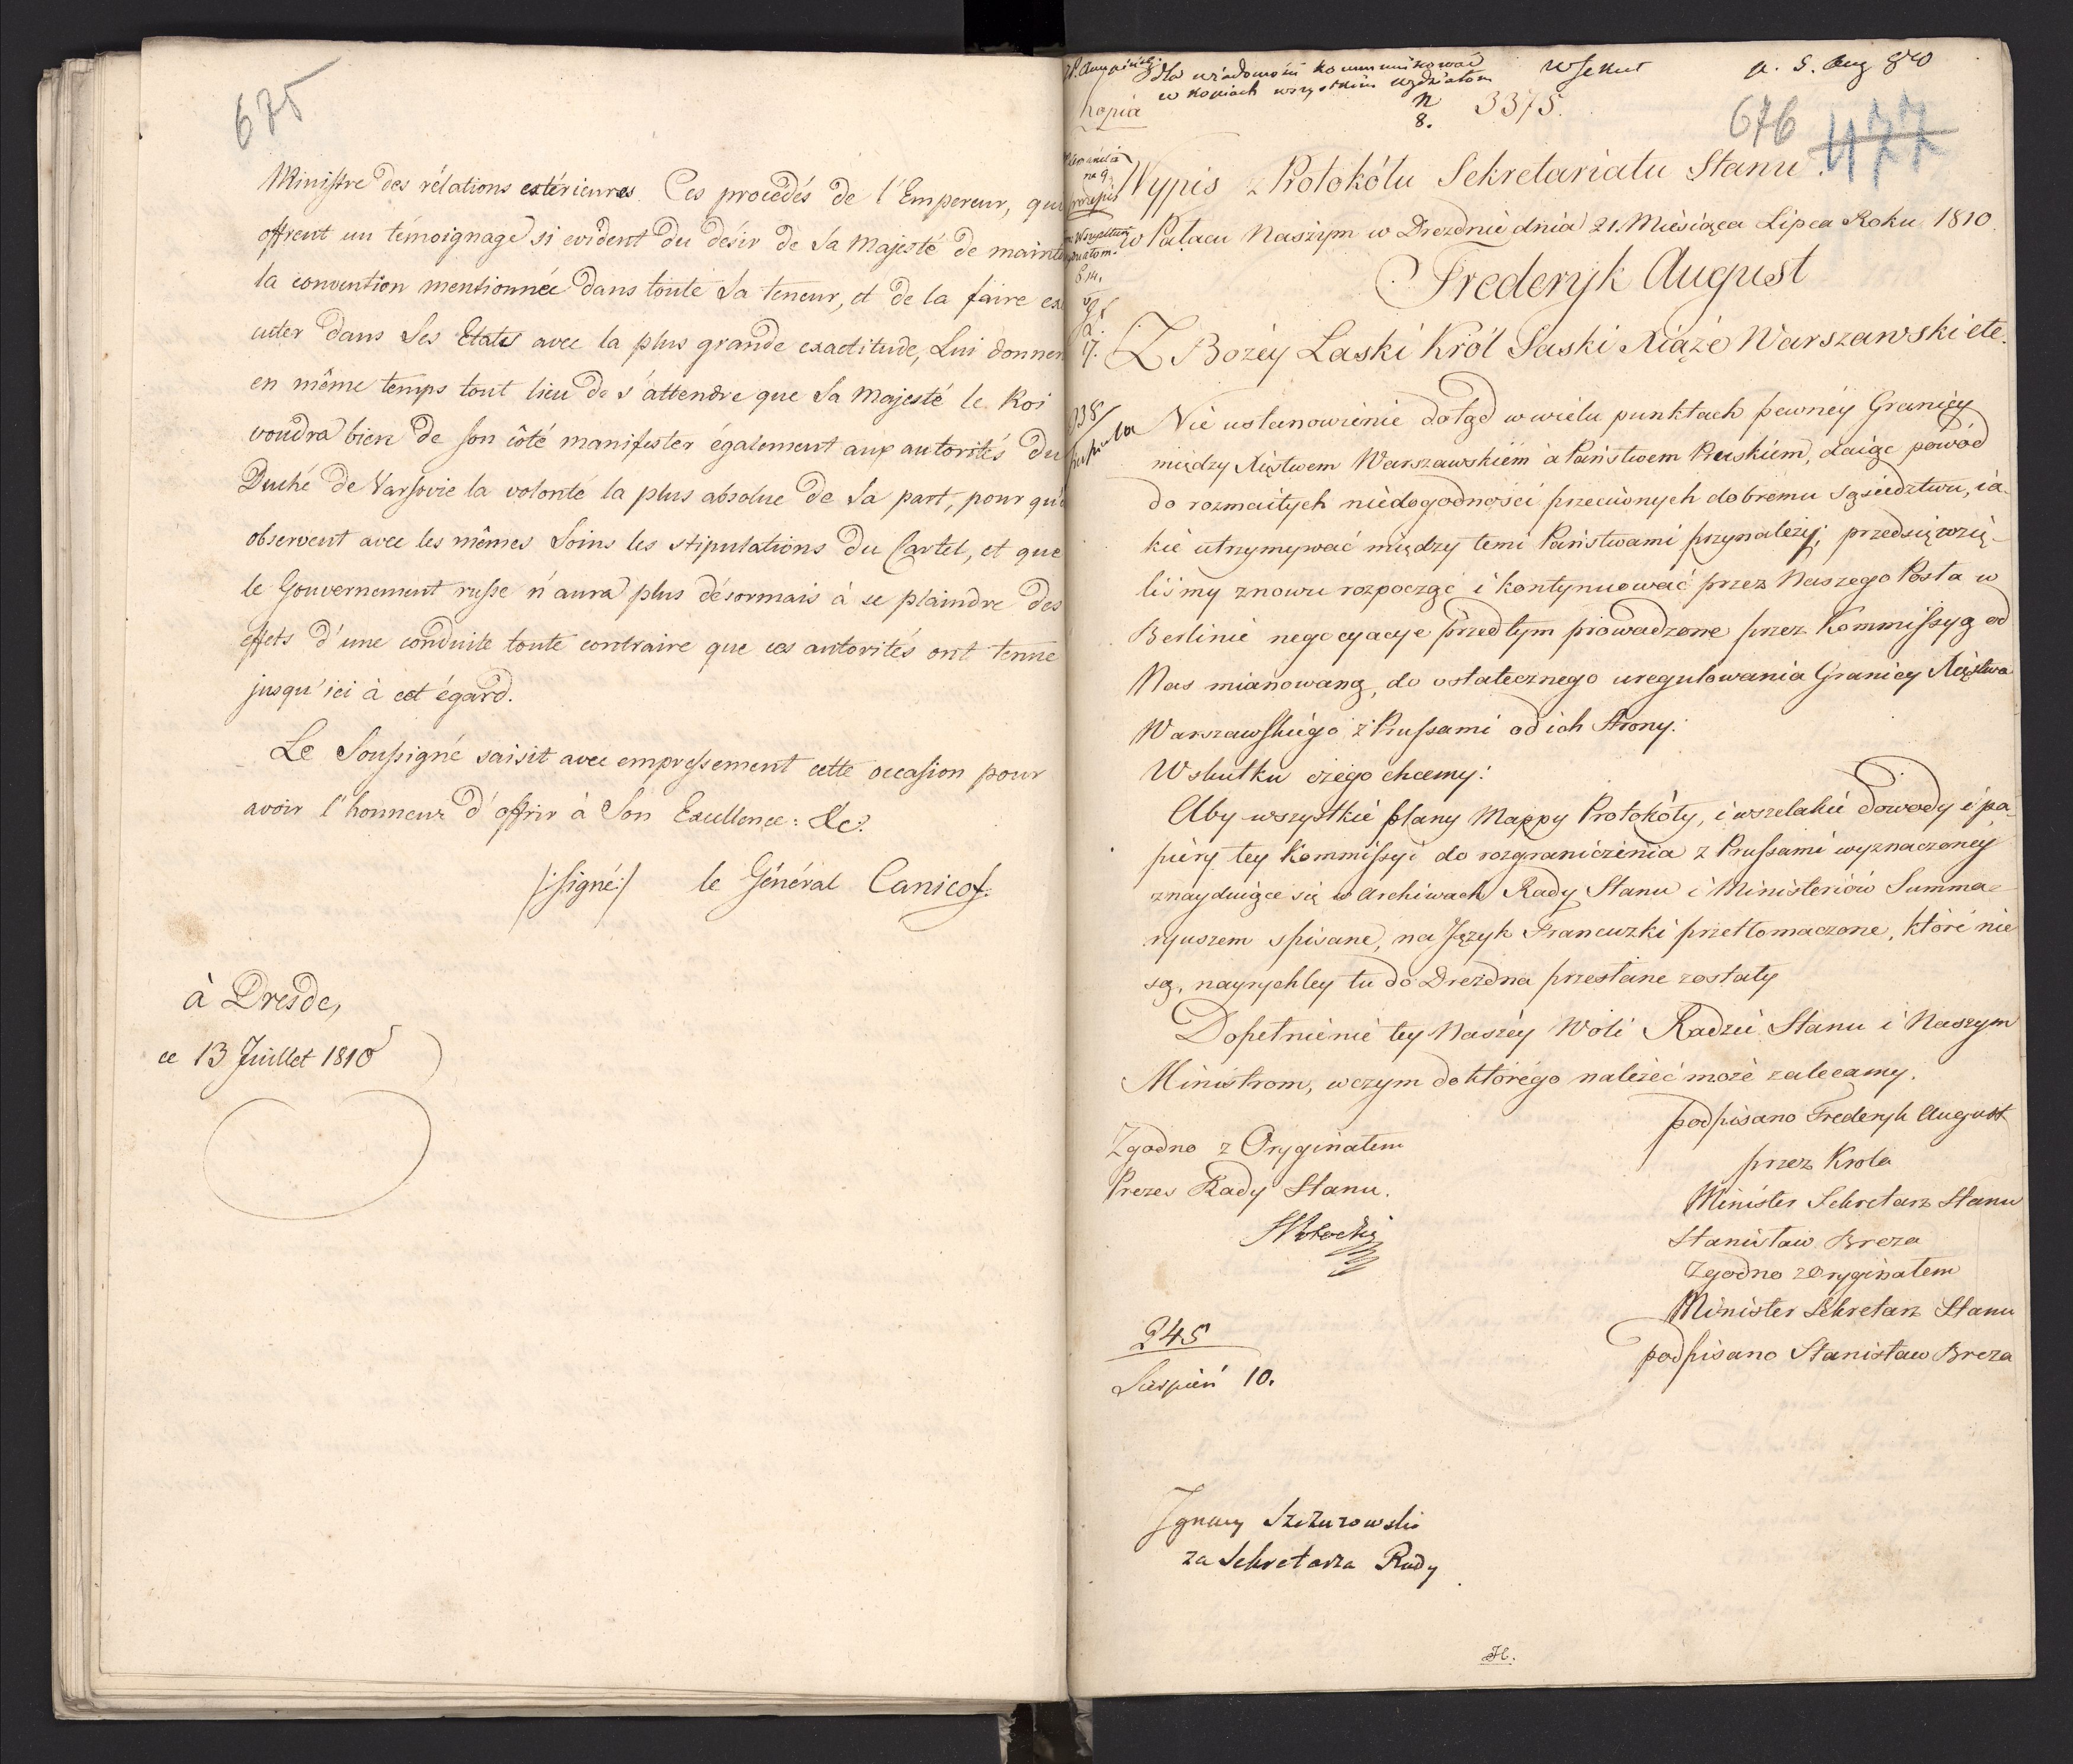 675
Ministre des rélations extérieures. Ces procédés de l'Empereur, qui
offrent un témoignage si evident du désir de Sa Majesté de mainte
la convention mentionnée dans toute sa teneur, et de la faire exé
cuter dans Ses Etats avec la plus grande exactitude, Lui donnen
en même temps tout lieu de s'attendre que Sa Majesté le Roi
voudra bien de son côté manifester également aux autorités du
Duché de Varsovie la volonté la plus absolue de Sa part, pour qu'e
observent avec les mêmes Soins les stipulations du Cartel, et que
le Gouvernement russe n'aura plus désormais à se plaindre des
effets d'une conduite toute contraire que ces autorités ont tenue
jusqu'ici à cet égard.
Le Soussigné saisit avec empressement cette occasion pour
avoir l'honneur d'offrir à Son Excellence: &c:
/:signé:/ le Général Canicof.
à Dresde,
ce 13 Juillet 1810
dla wiadomości kommunikować
w kopiach wszystkim wydziałom
p. 5. Aug 810
Kopia
N 3375.
8.
676
477
Wypis z Protokółu Sekretariatu Stanu.
w Pałacu Naszym w Dreznie dnia 21. Miesiąca Lipca Roku 1810.
Fryderyk August
Z Bożey Łaski Król Saski Xiąże Warszawski etc.
Nie ustanowienie dotąd w wielu punktach pewney Granicy
między Xięstwem Warszawskiem a Państwem Pruskiem, daiąc powód
do rozmaitych niedogodności przeciwnych dobremu sąsiedztwu, ia-
kie utrzymywać między temi Państwami przynależy; przedsięwzię-
liśmy znowu rozpocząć i kontynuować przez Naszego Posła w
Berlinie negocyacye przedtym prowadzone przez Kommissyą od
Nas mianowaną, do ostatecznego uregulowania Granicy Xięstwa
Warszawskiego z Prussami od ich Strony.
W skutku czego chcemy:
Aby wszystkie plany Mappy Protokóły, i wszelakie dowody i pa-
piery tey Kommissyi do rozgraniczenia z Prussami wyznaczoney
znayduiące się w Archiwach Rady Stanu i Ministeriów Summa-
ryuszem spisane, na Język Francuzki przetłomaczone, które nie
są, nayrychley tu do Drezdna przesłane zostały
Dopełnienie tey Naszey Woli Radzie Stanu i Naszym
Ministrom, w czym do którego należeć może zalecamy.
podpisano Frederyk August
przez Krola
Minister Sekretarz Stanu
Stanisław Breza
Zgodno z Oryginałem
Minister Sekretarz Stanu
podpisano Stanisław Breza
Zgodno z Oryginałem
Prezes Rady Stanu.
SPotocki
245
Sierpień 10.
Ignacy Szczurowski
za Sekretarza Rady